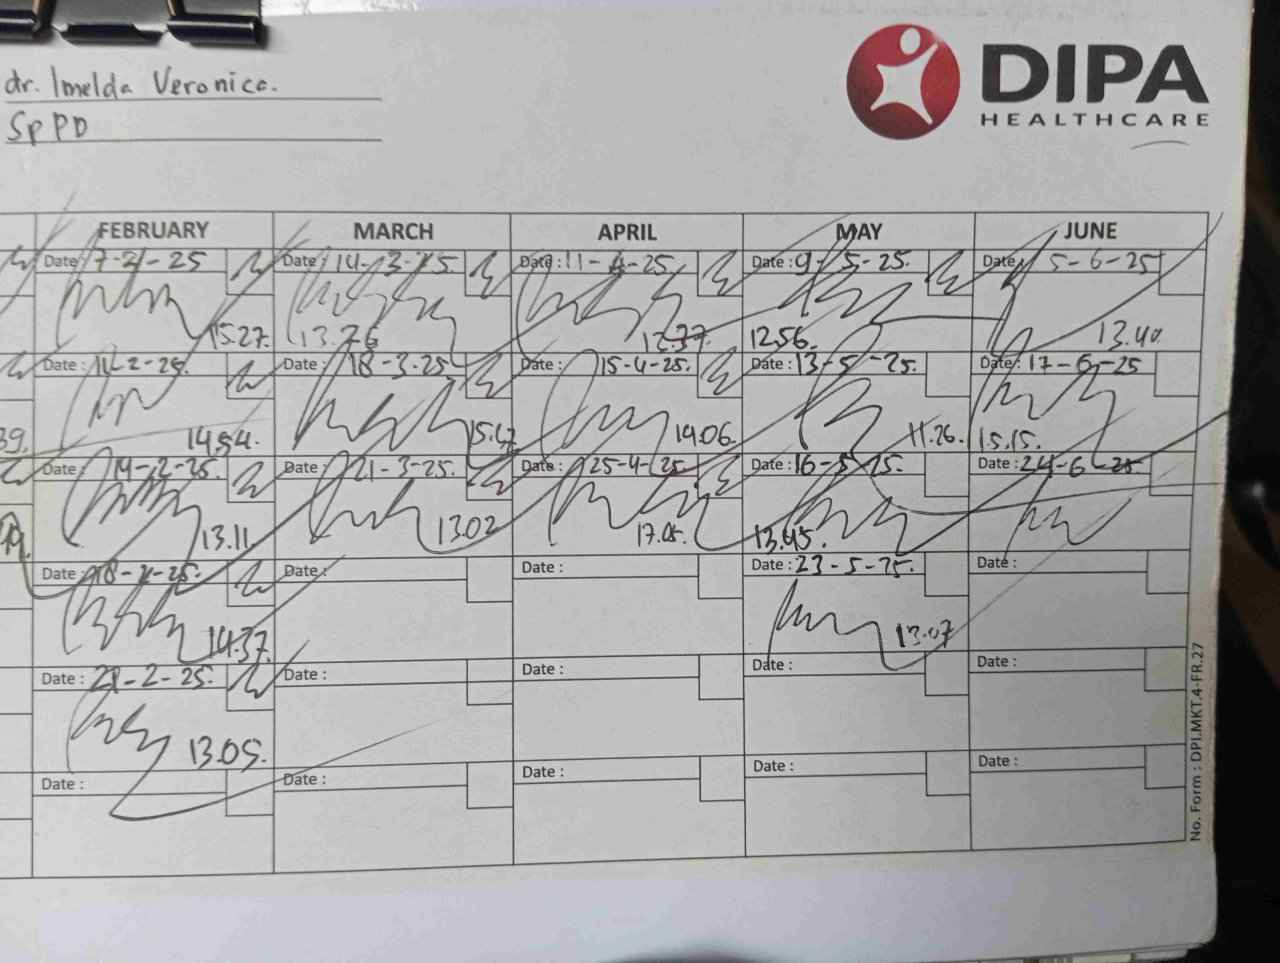 dr. Imelda Veronica.
SpPD
DIPA
HEALTHCARE
FEBRUARY MARCH APRIL MAY JUNE
Date : 7-2-25 Date : 14-3-25. Date : 11-4-25. Date : 9-5-25. Date : 5-6-25
15.27. 13.26 12.37 12.56. 13.40.
Date : 11-2-25. Date : 18-3-25. Date : 15-4-25. Date : 13-5-25. Date : 17-6-25
39. 14.54. 15.47 14.06. 11.26. 15.15.
Date : 14-2-25. Date : 21-3-25. Date : 25-4-25 Date : 16-5-25. Date : 24-6-25
13.11 13.02 17.05. 13.45.
Date : 18-2-25. Date : Date : Date : 23-5-25. Date :
14.37. 13.07
Date : 21-2-25. Date : Date : Date : Date :
13.05.
Date : Date : Date : Date : Date :
No. Form : DPI.MKT.4-FR.27